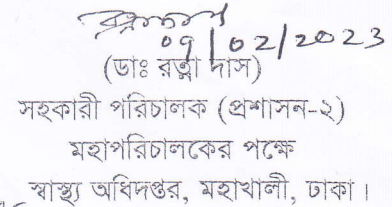 09/02/2023
(ডাঃ রত্না দাস)
সহকারী পরিচালক (প্রশাসন-২)
মহাপরিচালকের পক্ষে
স্বাস্থ্য অধিদপ্তর, মহাখালী, ঢাকা।